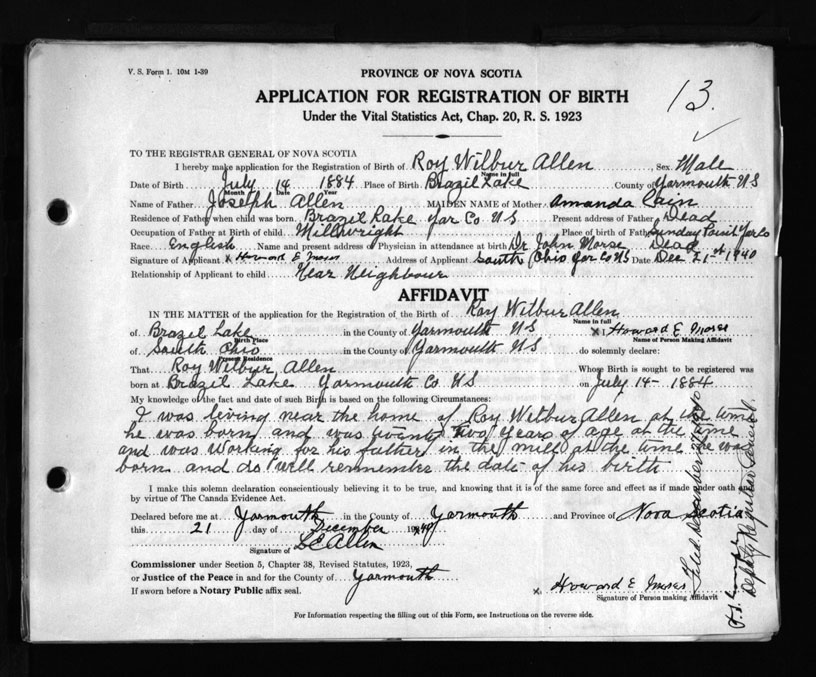 V. S. Form 1. 10M 1-39
PROVINCE OF NOVA SCOTIA
13.
APPLICATION FOR REGISTRATION OF BIRTH
Under the Vital Statistics Act, Chap. 20, R. S. 1923
TO THE REGISTRAR GENERAL OF NOVA SCOTIA
I hereby make application for the Registration of Birth of Roy Wilbur Allen Sex Male
Name in full
Date of Birth July 14 1884 Place of Birth Brazil Lake County of Yarmouth NS
Month Date Year
Name of Father Joseph Allen MAIDEN NAME of Mother Amanda Cain
Residence of Father when child was born Brazil Lake Yar Co NS Present address of Father Dead
Occupation of Father at Birth of child Millwright Place of birth of Father Sunday Point Yar Co
Race English Name and present address of Physician in attendance at birth Dr John Morse Dead
Signature of Applicant x Howard E Moses Address of Applicant South Ohio Yar Co NS Date Dec 21st 1940
Relationship of Applicant to child Near Neighbour
AFFIDAVIT
IN THE MATTER of the application for the Registration of the Birth of Roy Wilbur Allen
Name in full
of Brazil Lake in the County of Yarmouth NS x I Howard E Moses
Birth Place Name of Person Making Affidavit
of South Ohio in the County of Yarmouth NS do solemnly declare:
Present Residence
That Roy Wilbur Allen Whose Birth is sought to be registered was
born at Brazil Lake Yarmouth Co NS on July 14 - 1884
My knowledge of the fact and date of such Birth is based on the following Circumstances:
I was living near the home of Roy Wilbur Allen at the time
he was born and was twenty Two years of age at the time
and was working for his father in the mill at the time he was
born and do well remember the date of his birth
I make this solemn declaration conscientiously believing it to be true, and knowing that it is of the same force and effect as if made under oath and
by virtue of The Canada Evidence Act.
Declared before me at Yarmouth in the County of Yarmouth and Province of Nova Scotia
this 21 day of December 1940
L E Allen
Signature of
Commissioner under Section 5, Chapter 38, Revised Statutes, 1923,
or Justice of the Peace in and for the County of Yarmouth
If sworn before a Notary Public affix seal.
x Howard E Moses
Signature of Person making Affidavit
For Information respecting the filling out of this Form, see Instructions on the reverse side.
Filed December
Deputy Registrar General